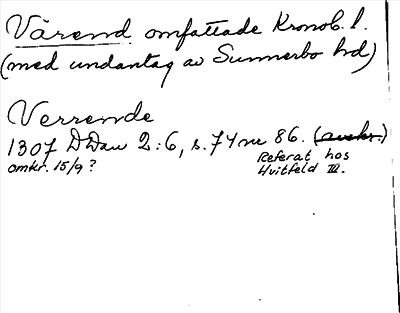 Värend omfattade Kronob. l.
(med undantag av Sunnerbo hd)
Verrende
1307 DDan 2:6, s. 74 nr 86. (avskr.)
omkr. 15/9? Referat hos
Hvitfeld III.